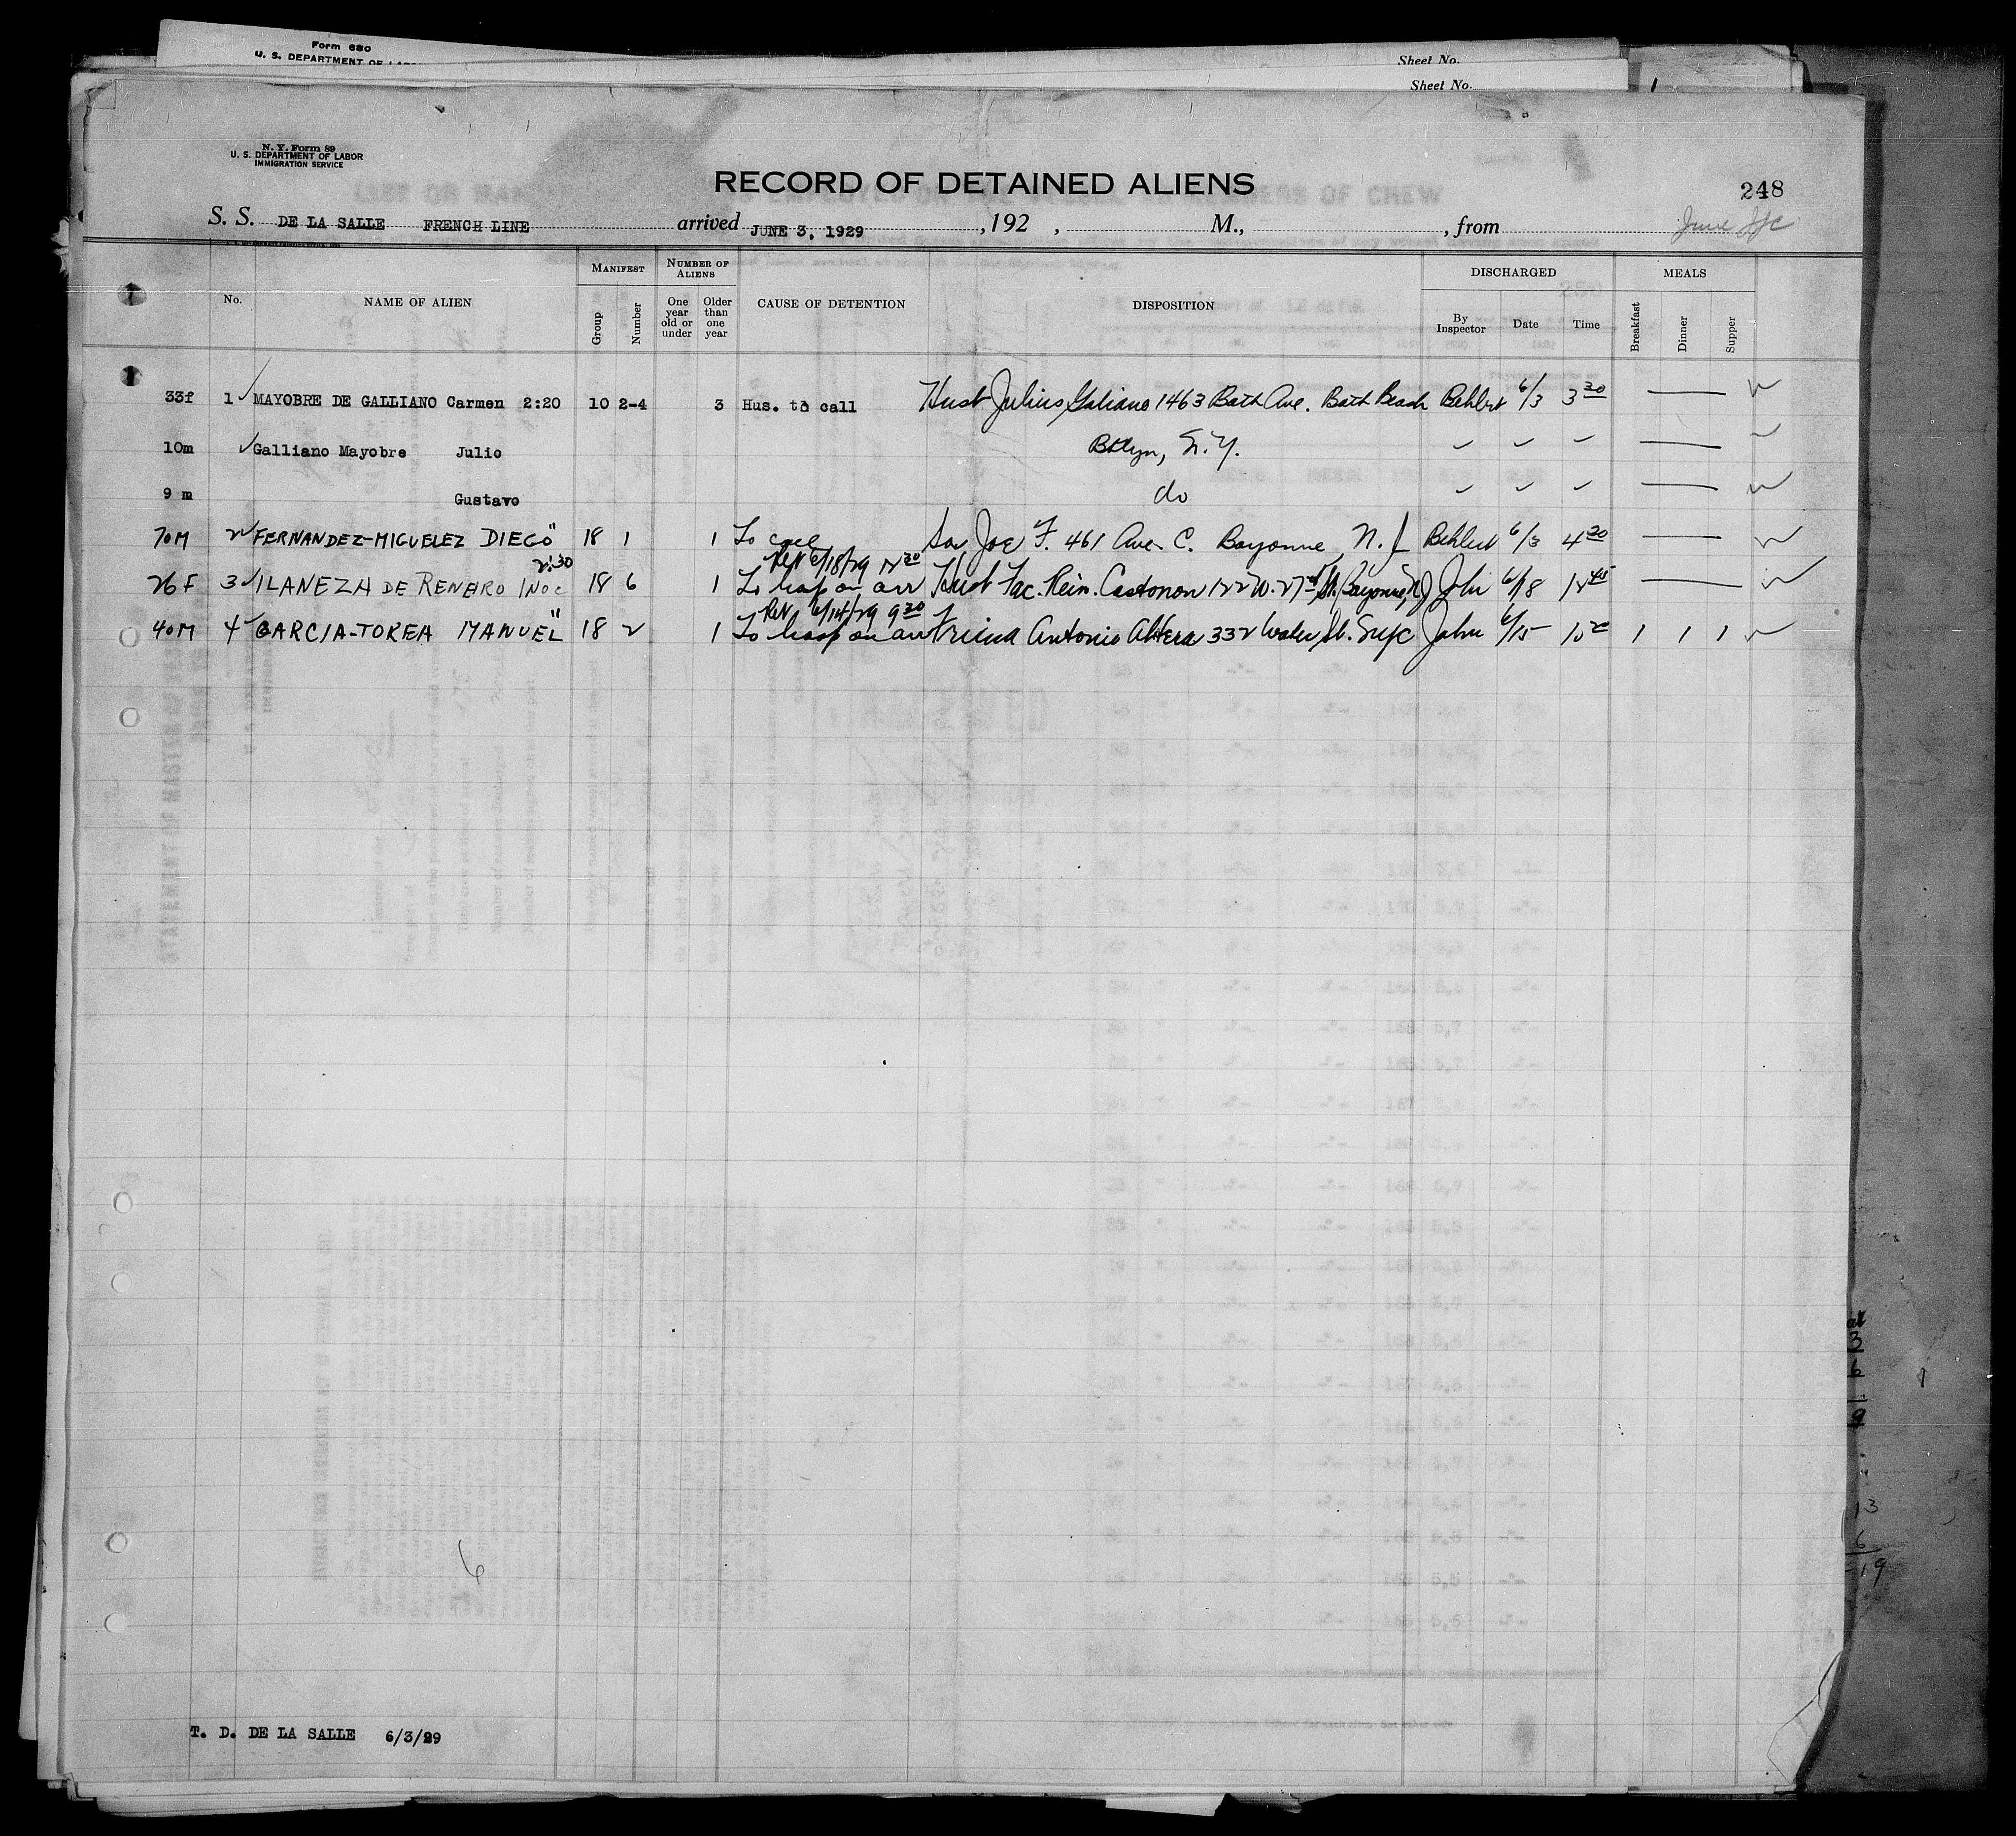 Form 680
U. S. DEPARTMENT OF
Sheet No.
Sheet No.
N. Y. Form 89
U. S. DEPARTMENT OF LABOR
IMMIGRATION SERVICE
RECORD OF DETAINED ALIENS
248
S. S. DE LA SALLE FRENCH LINE arrived JUNE 3, 1929 , 192 , M., , from June
No. NAME OF ALIEN MANIFEST Group Number NUMBER OF ALIENS One year old or under Older than one year CAUSE OF DETENTION DISPOSITION DISCHARGED By Inspector Date Time MEALS Breakfast Dinner Supper
33f 1 MAYOBRE DE GALLIANO Carmen 2:20 10 2-4 3 Hus. to call Husb Julius Galiano 1463 Bath Ave. Bath Beach Behlert 6/3 3 30
10m Galliano Mayobre Julio Bklyn, N.Y.
9 m Gustavo do
70M 2 FERNANDEZ-MIGUELEZ DIEGO " 18 1 1 To call Son Joe F. 461 Ave. C. Bayonne, N.J. Behlert 6/3 4 30
2:30 Rel 6/18/29 12 30
26 F 3 ILANEZA DE RENERO INOC 18 6 1 To hosp on arr Husb Fac. Rein. Castonon 122 W. 27 St. Bayonne, NJ John 6/18 12 45
Rel 6/14/29 9 30
40M 4 GARCIA-TOREA MANUEL " 18 2 1 To hosp on arr Friend Antonio 332 Water St. NYC John 6/15 10 20 1 1 1
6
T. D. DE LA SALLE 6/3/29
3
6
1
9
13
6
19